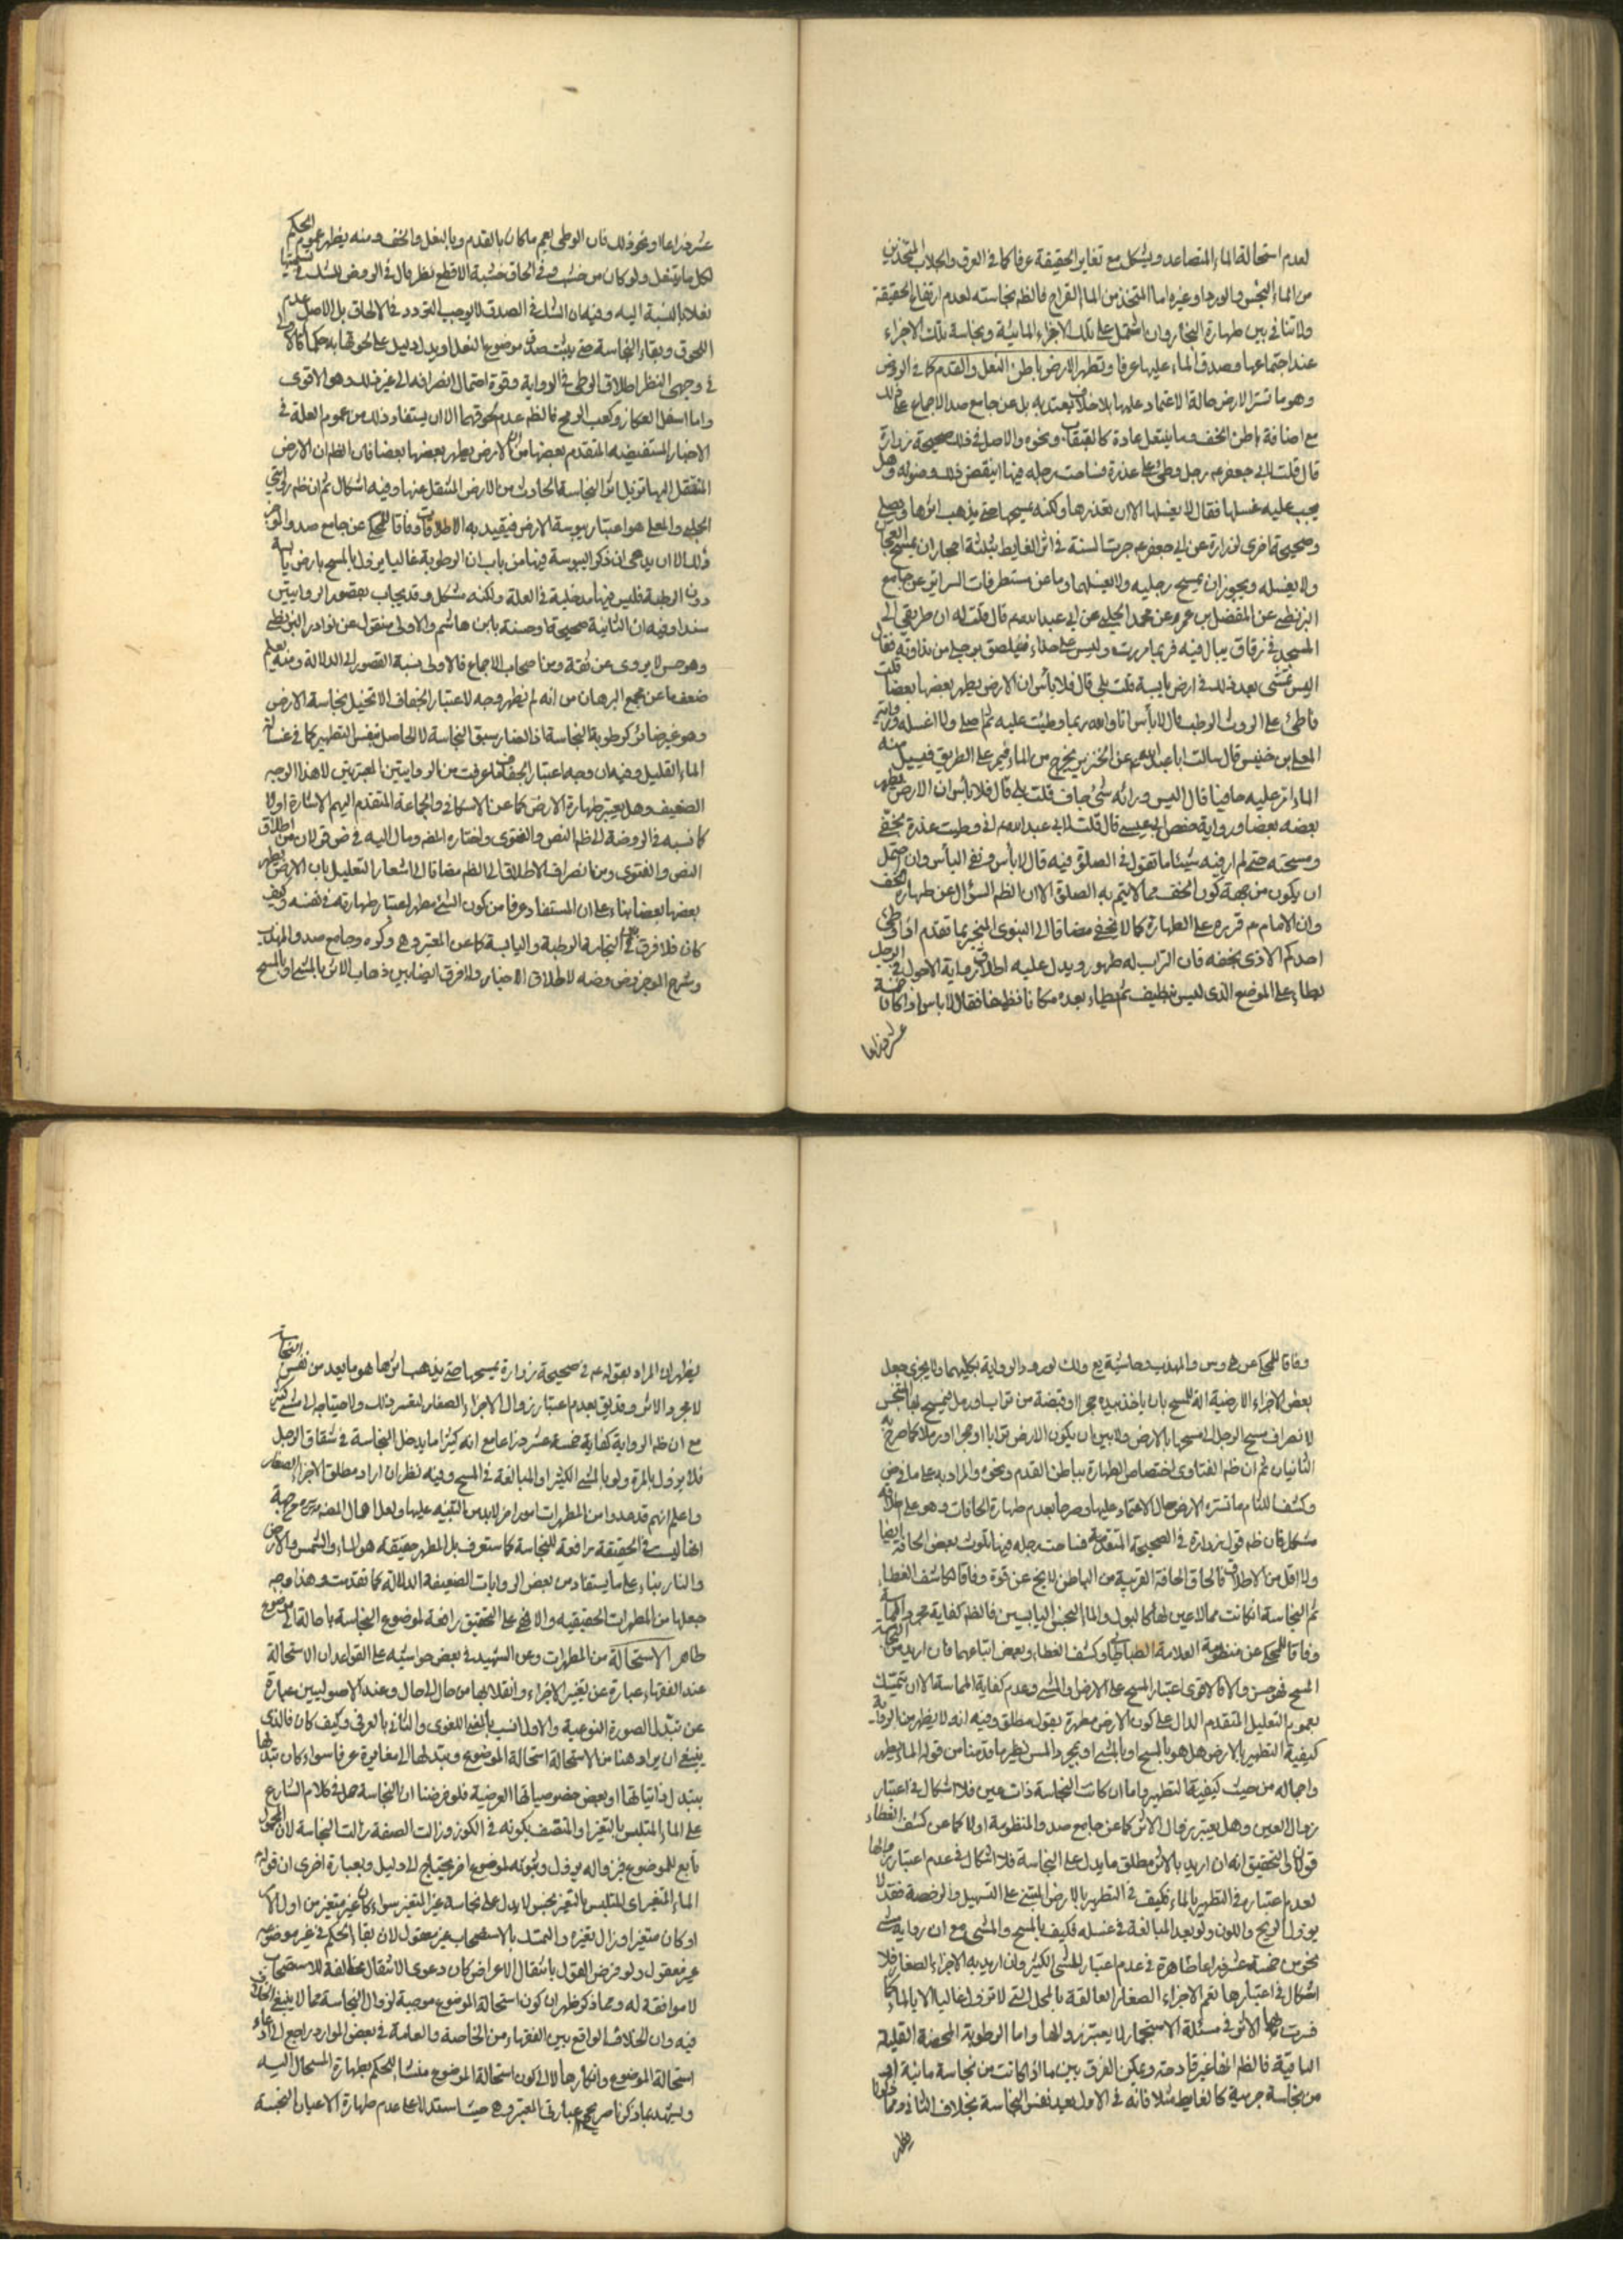 لعدم استحالة الماء المتصاعد ويشكل مع تغاير الحقيقة عرفا كما في العرق والجلاب المتخذين
من الماء النجس والورد او غيره اما المتخذ من الماء القراح فالظم نجاسته لعدم ارتفاع الحقيقة
ولا تنافي بين طهارة البخار وان اشتمل على تلك الاجزاء المائية ونجاسة تلك الاجزاء
عند اجتماعها وصدق الماء عليها عرفا وتطهر الارض باطن النعل والقدم كما في الروض
وهو ما تستر الارض حالة الاعتماد عليها بلا خلاف يعتد به بل عن جامع صد الاجماع على ذلك
مع اضافة باطن الخف وما ينتعل عادة كالقبقاب ونحوه والاصل في ذلك صحيحة زرارة
قال قلت لابي جعفر ع رجل وطئ على عذرة فساخت رجله فيها اينقض ذلك وضوئه وهل
يجب عليه غسلها فقال لا يغسلها الا ان يقذرها ولكنه يمسحها حتى يذهب اثرها ويصلي
وصحيحة اخرى لزرارة عن ابي جعفر ع جرت السنة في اثر الغايط بثلثة احجار ان يمسح العجان
ولا يغسله ويجوز ان يمسح رجليه ولا يغسلهما وما عن مستطرفات السرائر عن جامع
البزنطي عن المفضل بن عمر وعن محمد الحلبي عن ابي عبد الله ع قال قلت له ان طريقي الى
المسجد في زقاق يبال فيه فربما مررت وليس على حذاء فيلصق برجلي من نداوته فقال
اليس تمشي بعد ذلك في ارض يابسة قلت بلى قال فلا بأس ان الارض يطهر بعضها بعضا قلت
فاطئ على الروث الرطب قال لا بأس انا والله ربما وطئت عليه ثم اصلي ولا اغسله ورواية
المعلى بن خنيس قال سالت ابا عبد الله ع عن الخنزير يخرج من الماء فيمر على الطريق فيسيل منه
الماء امر عليه حافيا قال اليس ورائه شئ جاف قلت بلى قال فلا بأس ان الارض يطهر
بعضه بعضا ورواية حفص ابي عيسى قال قلت لابي عبد الله ع اني وطئت عذرة بخفي
ومسحته حتى لم ار فيه شيئا ما تقول في الصلوة فيه قال لا بأس ونفي البأس وان احتمل
ان يكون من جهة كون الخف مما لا يتم به الصلوة الا ان الظم السؤال عن طهارة الخف
وان الامام ع قرره على الطهارة كما لا يخفى مضافا الى النبوي المنجبر بما تقدم اذا وطئ
احدكم الاذى بخفه فان التراب له طهور ويدل عليه اطلاق رواية الاحول في الرجل
يطاء على الموضع الذي ليس بنظيف ثم يطاء بعده مكانا نظيفا فقال لا باس اذا كان خمسة
عشر ذراعا
عشر ذراعا او نحو ذلك فان الوطي يعم ما كان بالقدم وبالنعل والخف ومنه يظهر عموم الحكم
لكل ما ينتعل ولو كان من خشب وفي الحاق خشبة الاقطع نظر قال في الروض للشك في تسميتها
نعلا بالنسبة اليه وفيه ان الشك في الصدق لا يوجب التردد في الالحاق بل الاصل عدم
اللحوق وبقاء النجاسة حتى يثبت صدق موضوع النعل او يدل دليل على لحوقها به حكما فالاولى
في وجهي النظر اطلاق الوطي في الرواية وقوة احتمال انصرافه الى غير ذلك وهو الاقوى
واما اسفل العكاز وكعب الرمح فالظم عدم لحوقهما الا ان يستفاد ذلك من عموم العلة في
الاخبار المستفيضة المتقدم بعضها من ان الارض يطهر بعضها بعضا فان الظم ان الارض
المنتقل اليها تزيل اثر النجاسة الحادث من الارض المنتقل عنها وفيه اشكال ثم ان ظم روايتي
الحلبي والمعلى هو اعتبار يبوسة الارض فيقيد به الاطلاقات وفاقا للمحكي عن جامع صد وال
ذلك الا ان يدعى ان ذكر اليبوسة فيها من باب ان الرطوبة غالبا يزول بالمسح بارض يابسة
دون الرطبة فليس فيها مدخلية في العلة ولكنه مشكل وقد يجاب بقصور الروايتين
سندا وفيه ان الثانية صحيحة او حسنة بابن هاشم والاولى منقول عن نوادر البزنطي
وهو حسن لا يروى عن ثقة ومن اصحاب الاجماع فالاولى نسبة القصور الى الدلالة ومنه يعلم
ضعف ما عن مجمع البرهان من انه لم يظهر وجه لاعتبار الجفاف الا تخيل نجاسة الارض
وهو غير ضائر كرطوبة النجاسة اذ الضار سبق النجاسة لا الحاصل بنفس التطهير كما في غسالة
الماء القليل وفيه ان وجه اعتبار الجفاف ما عرفت من الروايتين المعتبرتين لا هذا الوجه
الضعيف وهل يعتبر طهارة الارض كما عن الاسكافي والجماعة المتقدم اليهم الاشارة او لا
كما نسبه في الروضة الى ظم النص والفتوى واختاره المص ومال اليه في ض قولان من اطلاق
النص والفتوى ومن انصراف الاطلاق الى الظم مضافا الى اشعار التعليل بان الارض يطهر
بعضها بعضا بناء على ان المستفاد عرفا من كون الشئ مطهرا اعتبار طهارته في نفسه وكيف
كان فلا فرق في النجاسة الرطبة واليابسة كما عن المعتبر وهى وكره وجامع صد والمهذب
وشرح الموجز وض وضه لاطلاق الاخبار ولا فرق ايضا بين ذهاب الاثر بالمشي او بالمسح
وفاقا للمحكي عن هى وس والمهذب وحاشية يع ولك لورود الرواية بكليهما ولا يجزي جعل
بعض الاجزاء الارضية الة للمسح بان ياخذ بيده حجرا او قبضة من تراب او رمل فيمسح بها المتنجس
لانصراف مسح الرجل الى مسحها بالارض ولا بين ان يكون الارض ترابا او حجرا او رملا كما صرح به
الثانيان ثم ان ظم الفتاوى اختصاص الطهارة بباطن القدم ونحوه والمراد به على ما في ض
وكشف اللثام ما تستره الارض حال الاعتماد عليها وصرحا بعدم طهارة الحافات وهو على اطلاقه
مشكل فان ظم قول زرارة في الصحيحة المتقدمة فساخت رجله فيها تلوث بعض الحافة ايضا
ولا اقل من الاطلاق فالحاق الحافة القريبة من الباطن لا يخ عن قوة وفاقا لكاشف الغطاء
ثم النجاسة ان كانت مما لا عين لها كالبول والماء النجس اليابسين فالظم كفاية مجرد المماسة
وفاقا للمحكي عن منظومة العلامة الطباطبائي وكشف الغطاء وبعض اتباعهما فان اريد من
المسح فهو حسن والا فالاقوى اعتبار المسح على الارض والمشي وعدم كفاية المماسة الا ان يتمسك
بعموم التعليل المتقدم الدال على كون الارض مطهرة بقول مطلق وفيه انه لا يظهر من الرواية
كيفية التطهير بالارض هل هو بالمسح او بالمشي او بمجرد المس نظير ما قدمنا من قوله الماء يطهر
واجماله من حيث كيفية التطهير واما ان كانت النجاسة ذات عين فلا اشكال في اعتبار
زوال العين وهل يعتبر زوال الاثر كما عن جامع صد والمنظومة او لا كما عن كشف الغطاء
قولان والتحقيق انه ان اريد بالاثر مطلق ما يدل على النجاسة فلا اشكال في عدم اعتبار زوالها
لعدم اعتباره في التطهير بالماء فكيف في التطهير بالارض المبتني على التسهيل والرخصة فقد لا
يزول الريح واللون ولو بعد المبالغة في غسله فكيف بالمسح والمشي مع ان رواية مشي
نحو من خمسة عشر ذراعا ظاهرة في عدم اعتبار المشي الكثير وان اريد به الاجزاء الصغار فلا
اشكال في اعتبارها نعم الاجزاء الصغار العالقة بالمحل التي لا تزول غالبا الا بالماء كما
فسرت بها الاثر في مسئلة الاستجمار لا يعتبر زوالها واما الرطوبة المحضة القليلة
الباقية فالظم انها غير قادحة ويمكن الفرق بين ما اذا كانت من نجاسة مائية او
من نجاسة جرمية كالغايط مثلا فانه في الاول يعد نفس النجاسة بخلاف الثاني ومما ذكرنا
يظهر
يظهر ان المراد بقوله ع في صحيحة زرارة يمسحها حتى يذهب اثرها هو ما يعد من نفس النجاسة
لا مجرد الاثر وقد يق بعدم اعتبار زوال الاجزاء الصغار لتعسر ذلك ولاحتياجه الى مشي كثير
مع ان ظم الرواية كفاية خمسة عشر ذراعا مع انه كثيرا ما يدخل النجاسة في شقاق الرجل
فلا يزول بالمرة ولو بالمشي الكثير او المبالغة في المسح وفيه نظر ان اراد مطلق الاجزاء الصغار
واعلم انهم قد عدوا من المطهرات امورا اخر لا بد من التنبيه عليها ولعل اهمال المص
انها ليست في الحقيقة رافعة للنجاسة كما ستعرف بل المطهر حقيقة هو الماء والشمس والارض
والنار بناء على ما يستفاد من بعض الروايات الضعيفة الدلالة كما تقدمت وهذا وجه
جعلها من المطهرات الحقيقية والا فهي على التحقيق رافعة لموضوع النجاسة باحالتها الى موضوع
طاهر الاستحالة من المطهرات وعن الشهيد في بعض حواشيه على القواعد ان الاستحالة
عند الفقهاء عبارة عن تغير الاجزاء وانقلابها من حال الى حال وعند الاصوليين عبارة
عن تبدل الصورة النوعية والاول انسب بالمعنى اللغوي والثاني بالعرفي وكيف كان فالذي
ينبغي ان يراد هنا من الاستحالة استحالة الموضوع وتبدلها الى مغايره عرفا سواء كان تبدلها
بتبدل ذاتياتها او بعض خصوصياتها العرضية فلو فرضنا ان النجاسة حمل في كلام الشارع
على الماء المتلبس بالتغير او المتصف بكونه في الكوز وزالت الصفة زالت النجاسة لان المحمول
تابع للموضوع فبزواله يزول وثبوته لموضوع اخر يحتاج الى دليل وبعبارة اخرى ان قولهم
الماء المتغير اي المتلبس بالتغير نجس لا يدل على نجاسة غير المتغير سواء كان غير متغير من اول الامر
او كان متغيرا وزال تغيره والتمسك بالاستصحاب غير معقول لان بقاء الحكم في غير موضوعه
غير معقول ولو فرض القول بانتقال الاعراض كان دعوى الانتقال مخالفة للاستصحاب
لا موافقة له ومما ذكر ظهر ان كون استحالة الموضوع موجبة لزوال النجاسة مما لا ينبغي الخلاف
فيه وان الخلاف الواقع بين الفقهاء من الخاصة والعامة في بعض الموارد راجع الى ادعاء
استحالة الموضوع وانكارها لا الى كون استحالة الموضوع منشأ للحكم بطهارة المستحال اليه
ويشهد بما ذكرنا صريح عبارتي المعتبر وهى حيث استدلا على عدم طهارة الاعيان النجسة